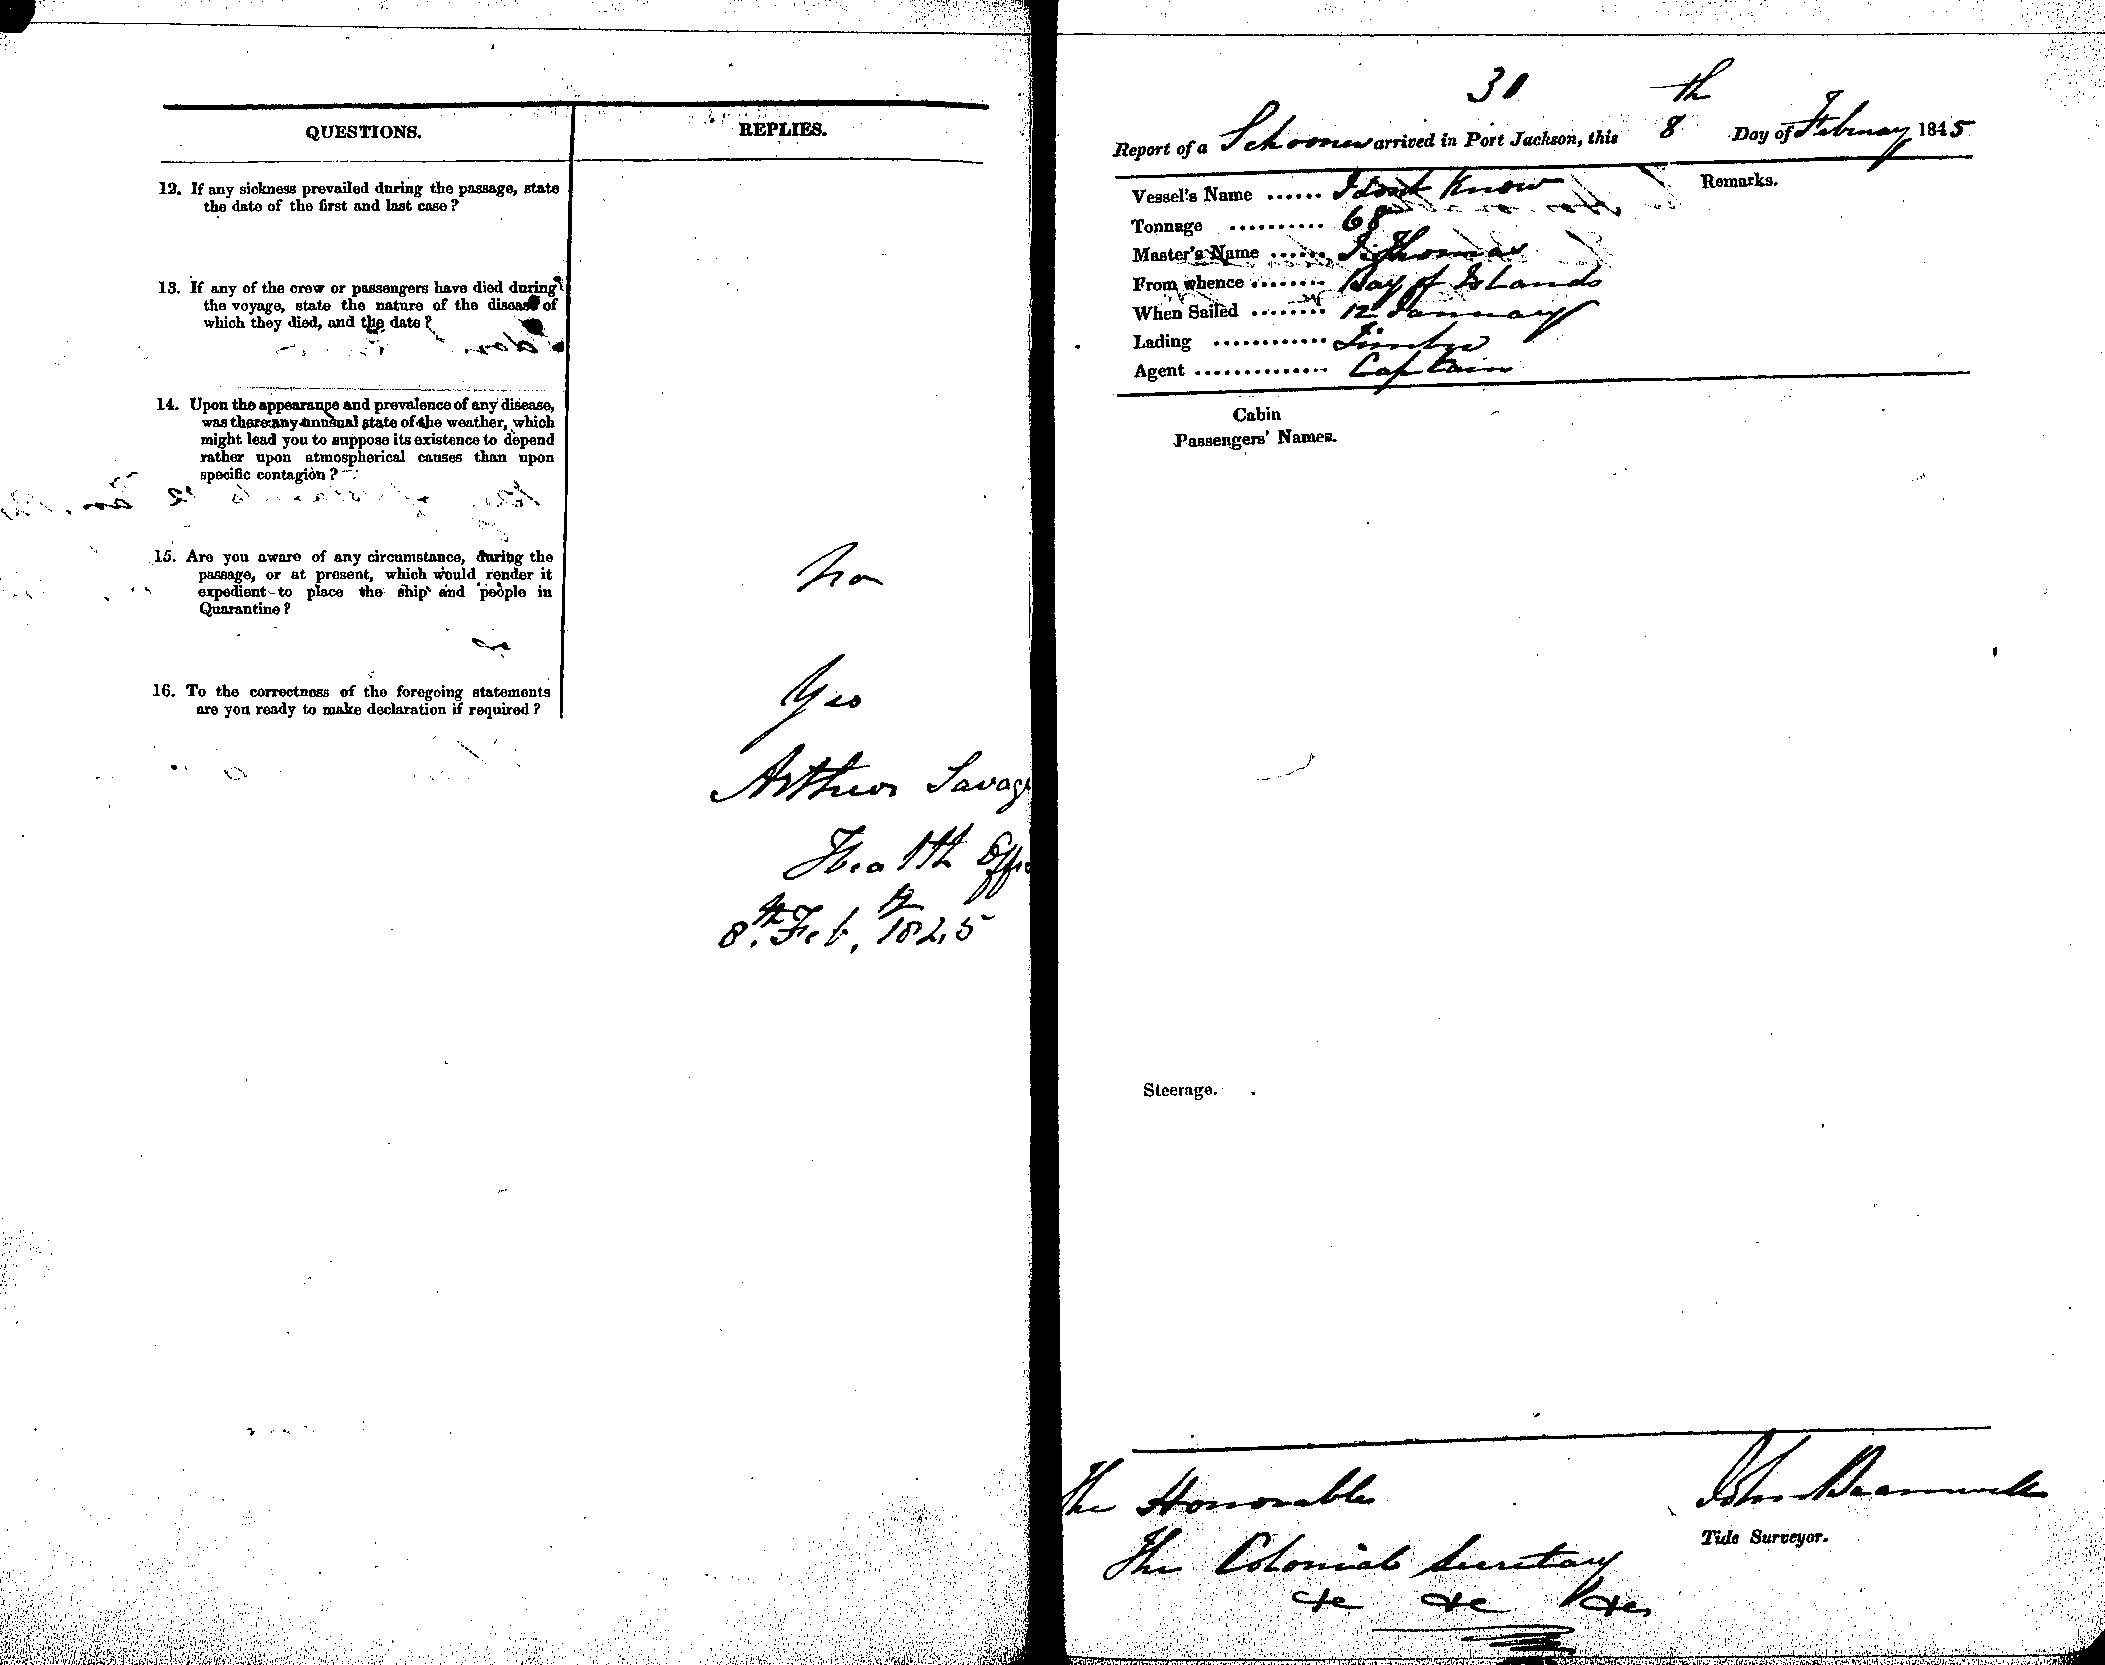 QUESTIONS.
REPLIES.
12. If any sickness prevailed during the passage, state
the date of the first and last case?
13. If any of the crew or passengers have died during
the voyage, state the nature of the disease of
which they died, and the date?
14. Upon the appearance and prevalence of any disease,
was there any unusual state of the weather, which
might lead you to suppose its existence to depend
rather upon atmospherical causes than upon
specific contagion?
15. Are you aware of any circumstance, during the
passage, or at present, which would render it
expedient to place the ship and people in
Quarantine?
No
16. To the correctness of the foregoing statements
are you ready to make declaration if required?
Yes
Arthur Savag
Health Offi
8th Feb. 1845
31
Report of a Schooner arrived in Port Jackson, this 8th Day of February 1845
Vessel's Name ...... I dont Know
Remarks.
Tonnage .......... 68
Master's Name ...... J. Thomas
From whence ........ Bay of Islands
When Sailed ........ 12 January
Lading ............ Timber
Agent .............. Captain
Cabin
Passengers' Names.
Steerage.
The Honorable
The Colonial Secretary
&c &c &c
John
Tide Surveyor.